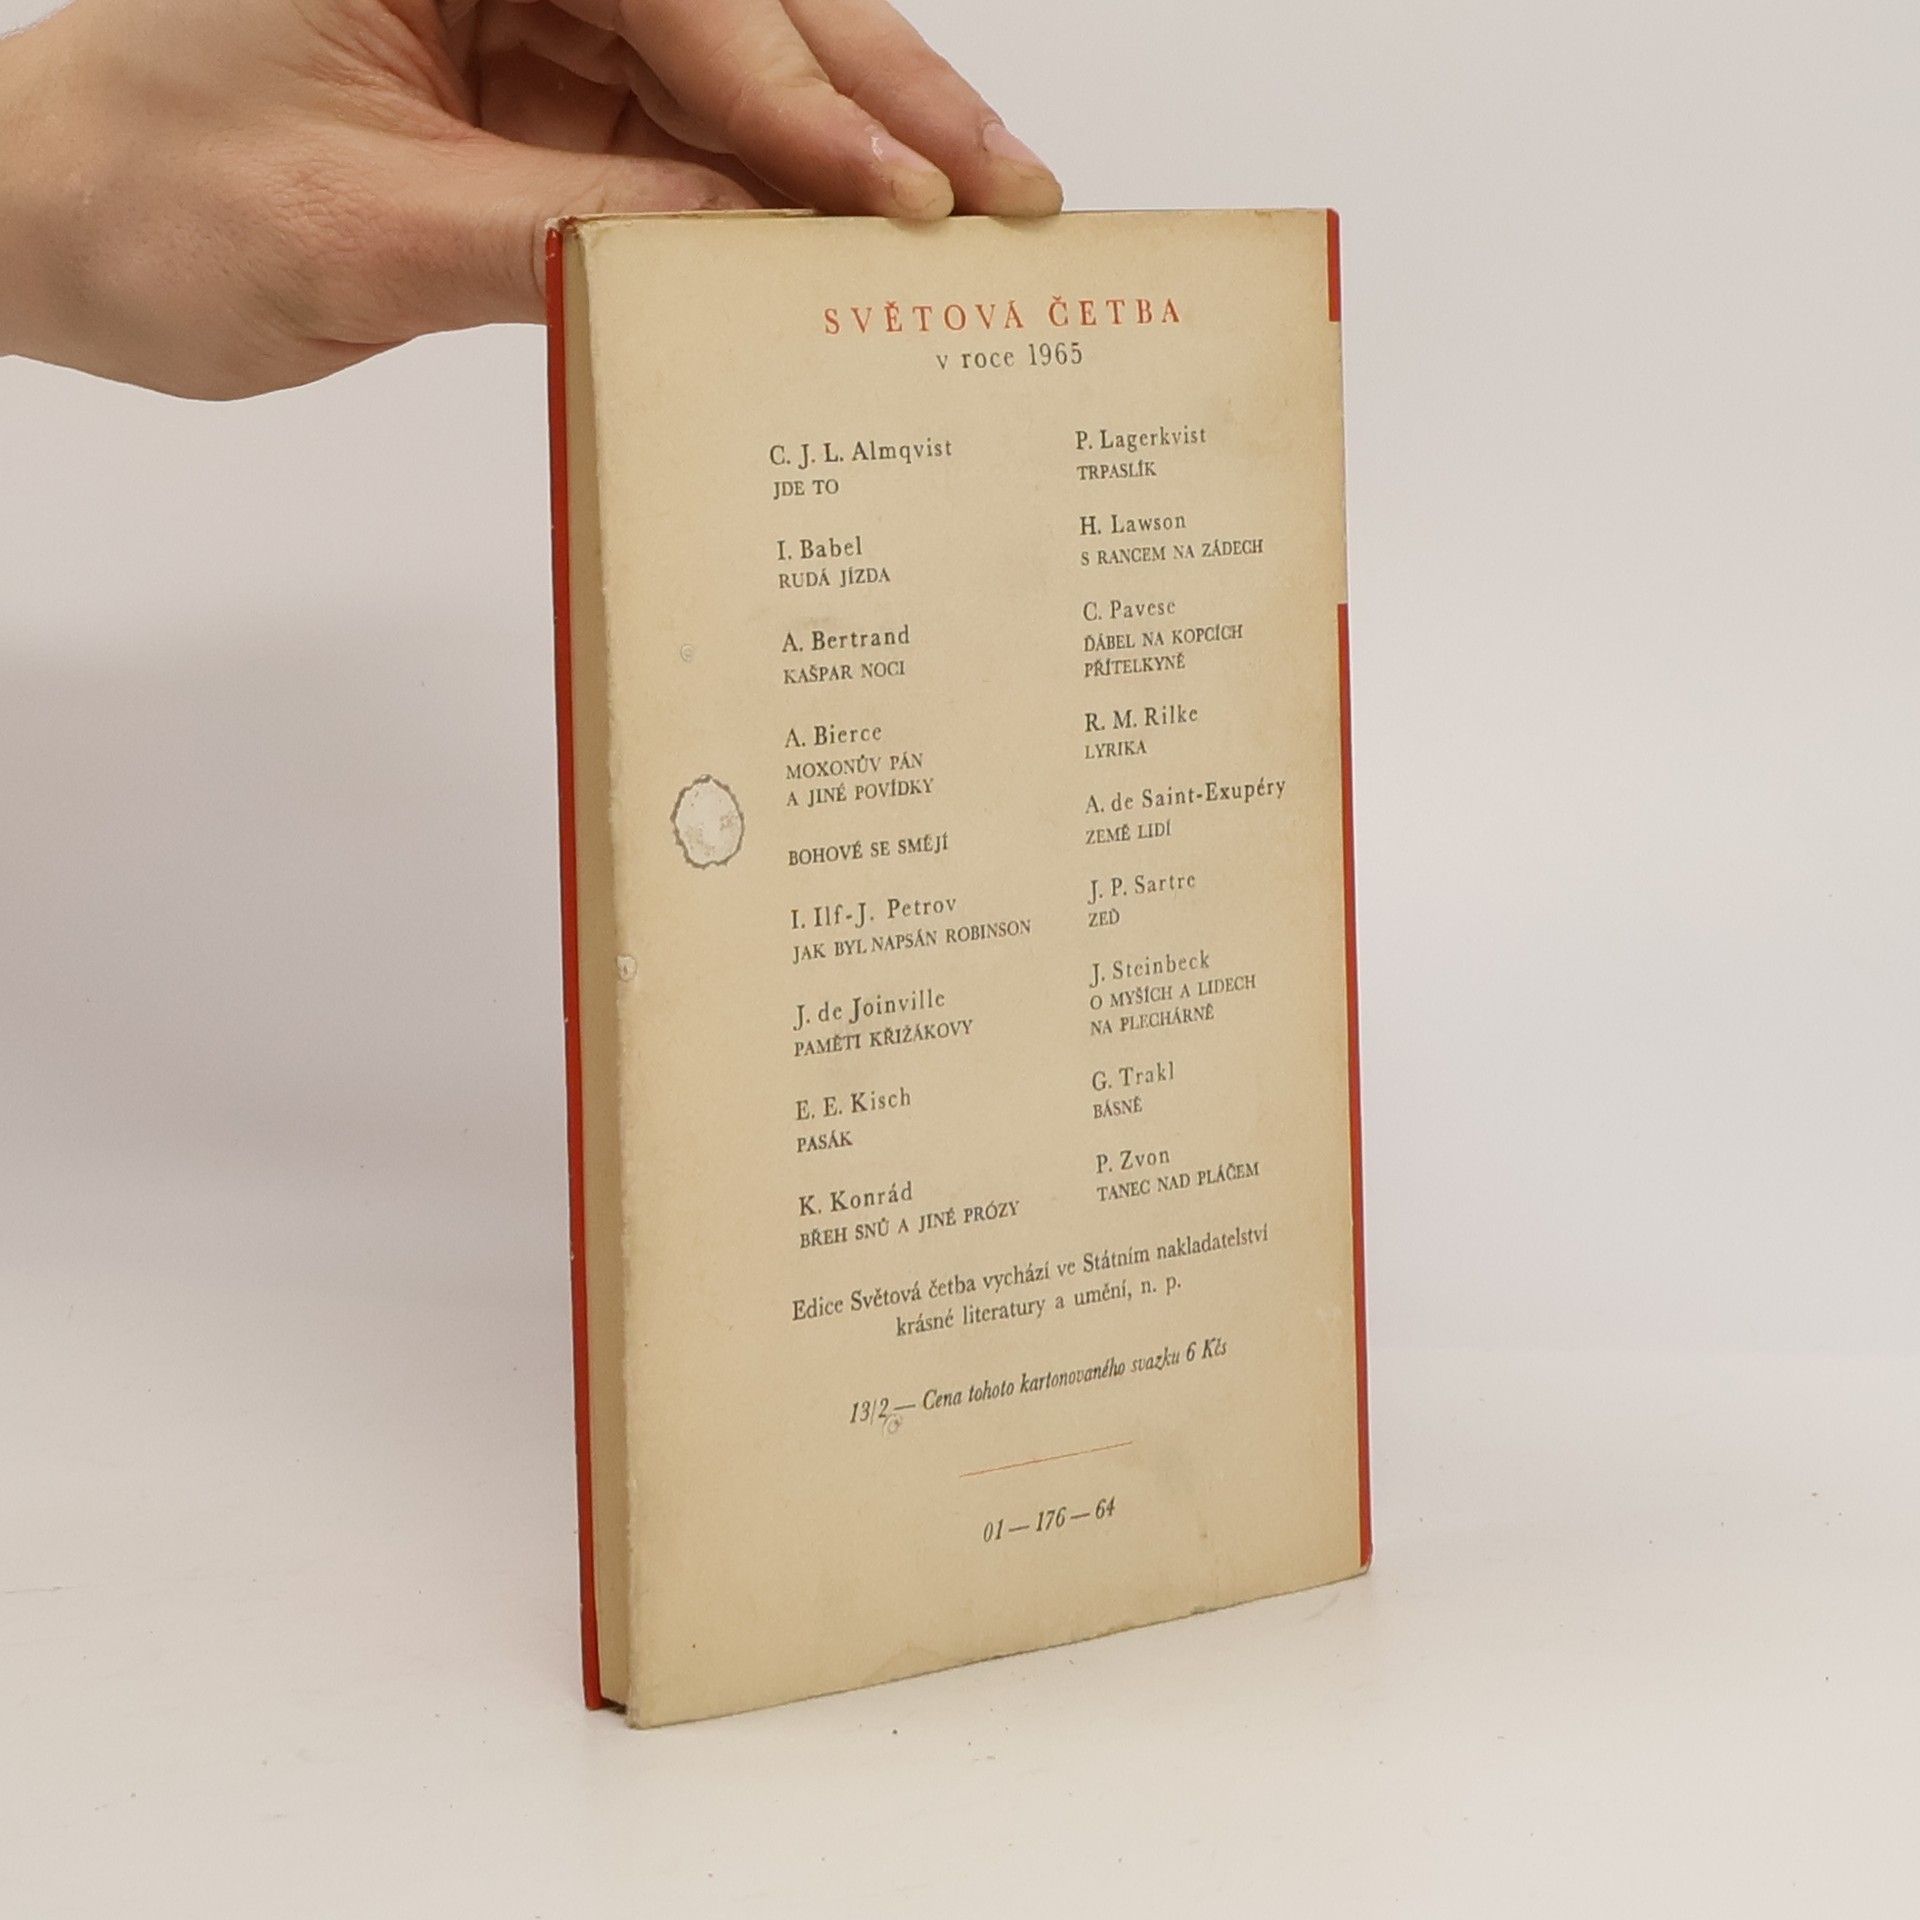 SVĚTOVÁ ČETBA
v roce 1965
C. J. L. Almqvist
JDE TO
I. Babel
RUDÁ JÍZDA
A. Bertrand
KAŠPAR NOCI
A. Bierce
MOXONŮV PÁN
A JINÉ POVÍDKY
BOHOVÉ SE SMĚJÍ
I. Ilf-J. Petrov
JAK BYL NAPSÁN ROBINSON
J. de Joinville
PAMĚTI KŘIŽÁKOVY
E. E. Kisch
PASÁK
K. Konrád
BŘEH SNŮ A JINÉ PRÓZY
P. Lagerkvist
TRPASLÍK
H. Lawson
S RANCEM NA ZÁDECH
C. Pavese
ĎÁBEL NA KOPCÍCH
PŘÍTELKYNĚ
R. M. Rilke
LYRIKA
A. de Saint-Exupéry
ZEMĚ LIDÍ
J. P. Sartre
ZEĎ
J. Steinbeck
O MYŠÍCH A LIDECH
NA PLECHÁRNĚ
G. Trakl
BÁSNĚ
P. Zvon
TANEC NAD PLÁČEM
Edice Světová četba vychází ve Státním nakladatelství
krásné literatury a umění, n. p.
13/2 — Cena tohoto kartonovaného svazku 6 Kčs
01 — 176 — 64